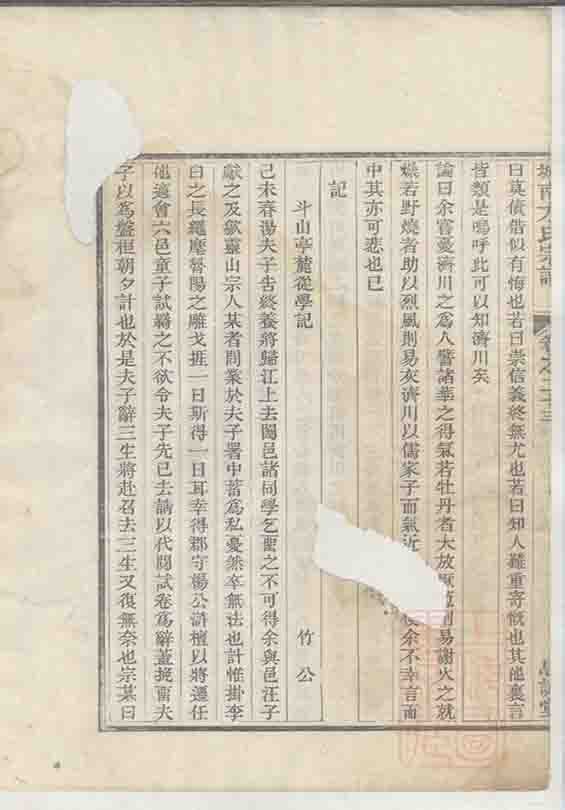 曰莫債借似有悔也若曰崇信義終無尤也若曰知人難重寄慨也其他裏言
皆類是嗚呼此可以知濟川矣
論曰余嘗憂濟川之為人譬諸華之得氣若牡丹者大放易謝火之就
燥若野燒者助以烈風則易灰濟川以儒家子而氣近余不幸言而
中其亦可悲也已
記
斗山亭麓從學記
竹公
己未春湯夫子告終養將歸江上去闔邑諸同學乞留之不可得余與邑汪子
獻之及歙靈山宗人某者問業於夫子署中蓄為私憂然卒無法也計惟掛李
白之長繩麾魯陽之雕戈捱一日斯得一日耳幸得郡守楊公滸檀以將遷任
他適會六邑童子試羇之不欲令夫子先已去請以代閱試卷為辭蓋挽留夫
子以為盤桓朝夕計也於是夫子辭三生將赴召去三生又復無奈也宗某曰